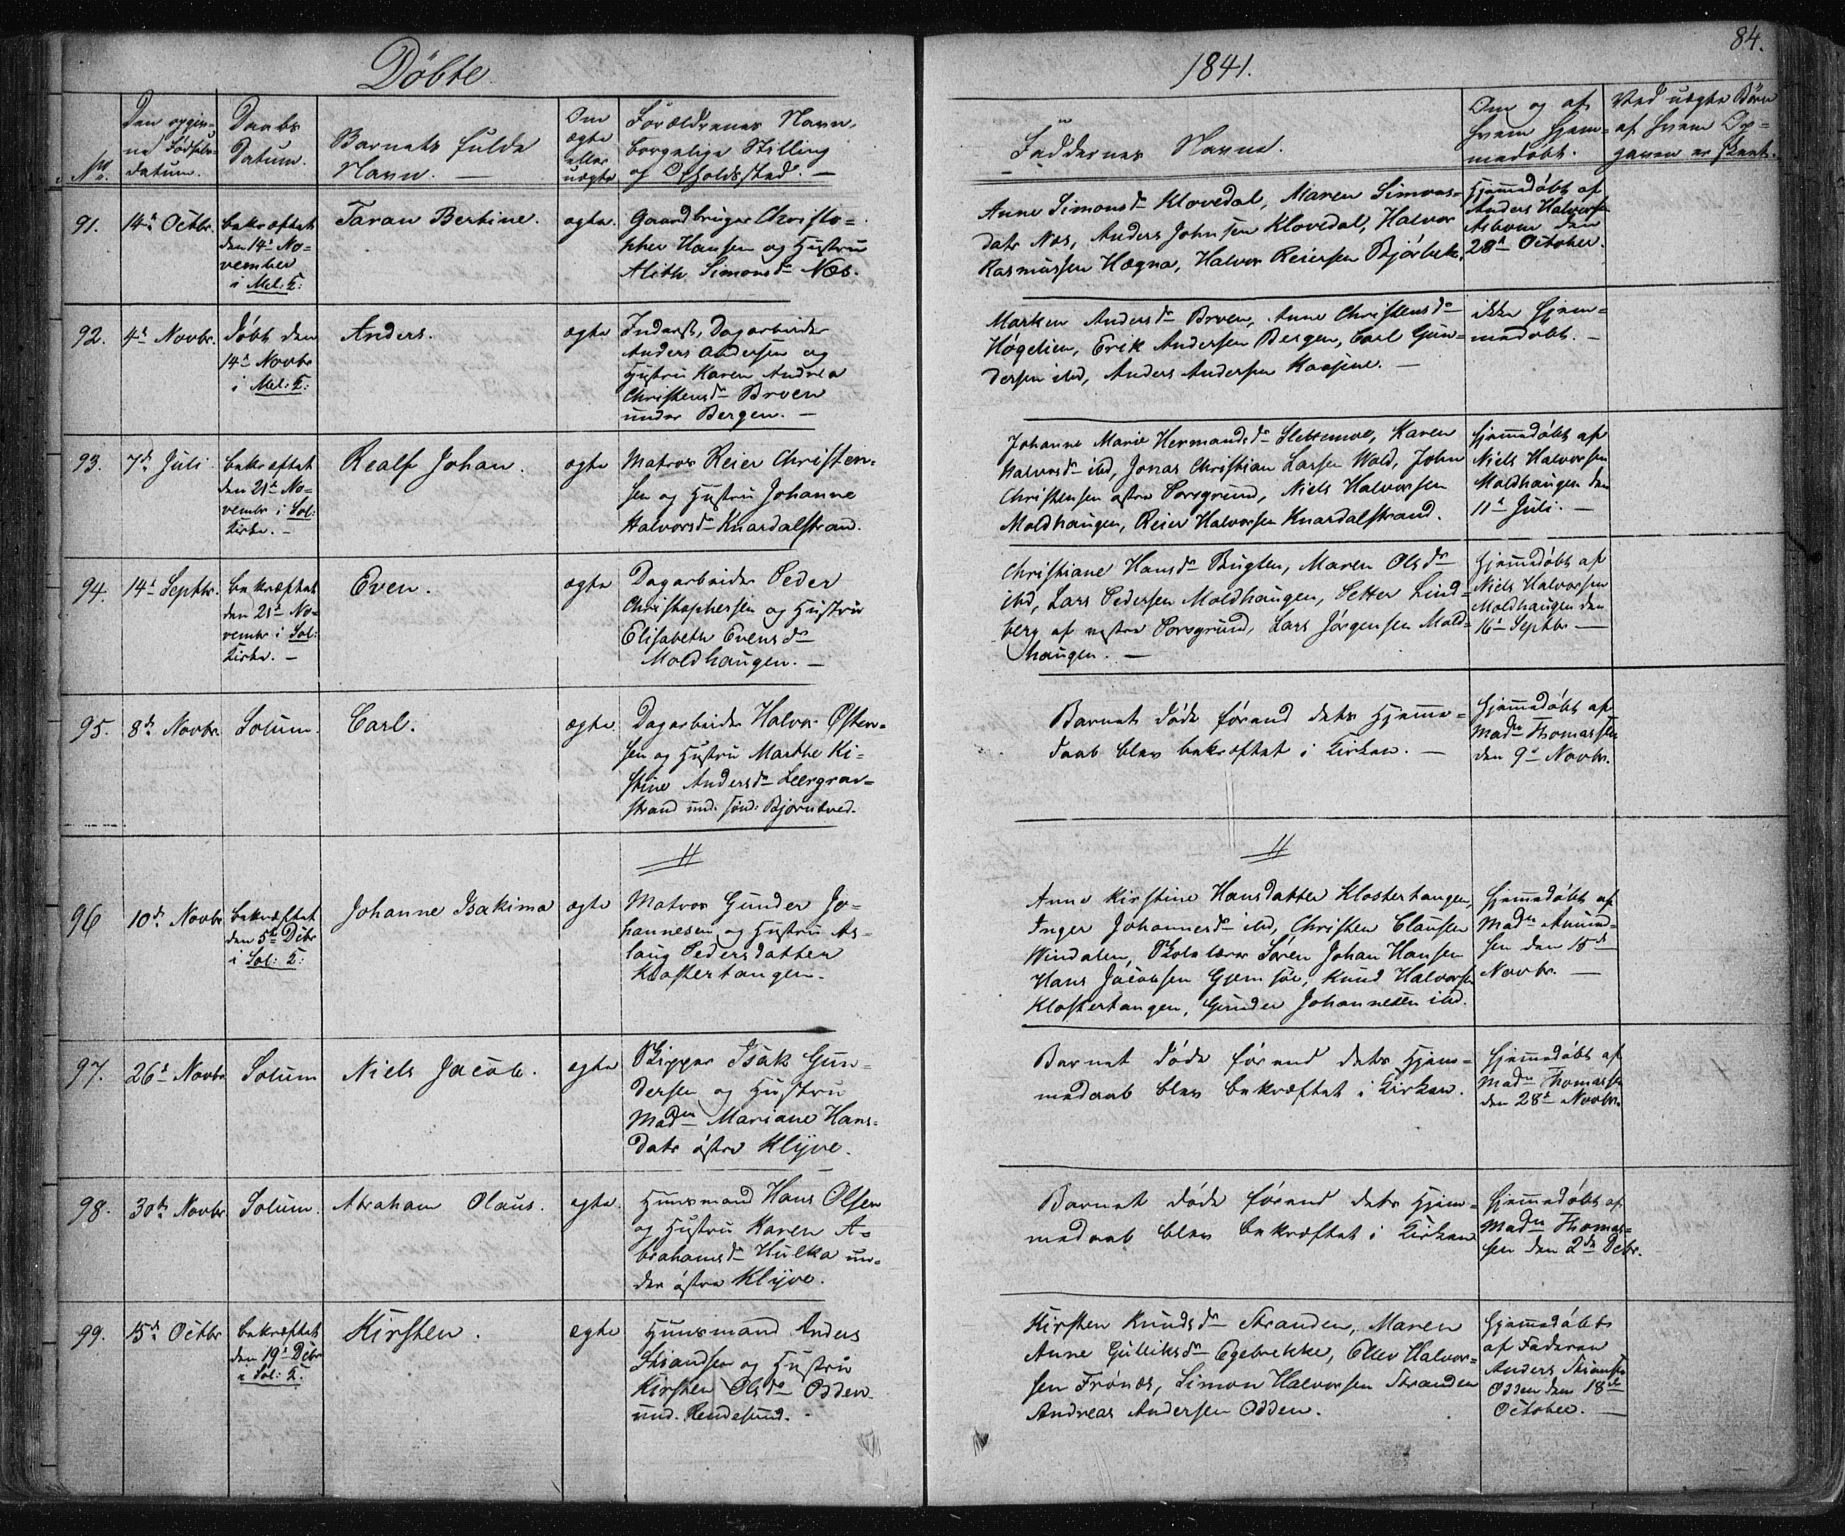 Döbte.
1841.
84.
No.
Den opgiv-
ne Födsels-
datum.
Daabs
Datum.
Barnets fulde
Navn. —
Om
ægte
eller
uægte
Forældrenes Navn,
borgelige Stilling
og Opholdssted. —
Faddernes Navne.
Om og af
hvem hjem-
medöbt.
Ved uægte Börn
af hvem Op-
gaven er skeet.
91.
14de Octbr.
bekræftet
den 14de No-
vember
i Mel: K:
Taran Bertine.
ægte.
Gaardbruger Christo-
pher Hansen og Hustru
Alith Simonsdr Næs.
Anne Simonsdr Klovedal, Maren Simons-
datr Næs, Anders Johnsen Klovedal, Halvor
Rasmussen Hægna, Halvor Reiersen Bjørbek.
Hjemmedöbt af
Anders Halvorsen
Aasbom den
28de October.
92.
4de Novbr.
döbt den
14de Novbr
i Mel: K:
Anders.
ægte
Inderst, Dagarbeider
Anders Andersen og
Hustru Karen Andrea
Christensdr Broen
under Bergen. —
Marthen Andersdr Broen, Anne Christensdr
Høgelien, Erik Andersen Bergen, Carl Gun-
dersen ibd, Anders Andersen Kaasene. —
ikke hjem-
medöbt. —
93.
7de Juli.
bekræftet
den 21de No-
vembr i Sol:
Kirke. —
Realf Johan.
ægte
Matros Reier Christen-
sen og Hustru Johanne
Halvorsdr Knardalstrand.
Johanne Marie Hermandsdr Slettemoe, Karen
Halvorsdr ibd, Jonas Christian Larsen Wold, John
Christensen østre Porsgrund, Niels Halvorsen
Moldhaugen, Reier Halvorsen Knardalstrand.
Hjemmedöbt af
Niels Halvorsen
Moldhaugen den
11te Juli. —
94.
14de Septbr.
bekræftet
den 21de No-
vembr i Sol:
Kirke. —
Even.
ægte
Dagarbeider Peder
Christophersen og Hustru
Elisabeth Evensdr
Moldhaugen. —
Christiane Hansdr Bugten, Maren Olsdr
ibd, Lars Pedersen Moldhaugen, Petter Lind-
berg af vestre Porsgrund, Lars Jörgensen Mold-
haugen. —
Hjemmedöbt af
Niels Halvorsen
Moldhaugen den
16de Septbr —
95.
8de Novbr.
Solum.
Carl.
ægte
Dagarbeider Halvor Østen-
sen og Hustru Marthe Ki-
stine Andersdr Leergrav-
strand und. sönd. Bjørntved.
Barnet döde forend dets Hjemme-
daab blev bekræftet i Kirken. —
Hjemmedöbt af
Madm Thomassen
den 9de Novbr.
96
10de Novbr
bekræftet
den 5te Debr
i Sol: K:
Johanne Isakima
ægte
Matros Gunder Jo-
hannesen og Hustru As-
laug Pedersdatter
Klostertangen.
Anne Kirstine Hansdatter Klostertangen,
Inger Johannesdr ibd, Christen Clausen
Windalen, Skolelærer Sören Johan Hansen
Hans Jacobsen Gjemsöe, Knud Halvorsen
Klostertangen, Gunder Johannesen ibd.
Hjemmedöbt af
Madm Amund-
sen den 15de
Novbr. —
97.
26de Novbr
Solum
Niels Jacob.
ægte
Skipper Isak Gun-
dersen og Hustru
Madm Mariane Hans-
datr östre Klyve.
Barnet döde förend dets Hjem-
medaab blev bekræftet i Kirken.
Hjemmedöbt af
Madm Thomassen
den 28de Novbr.
98.
30de Novbr
Solum.
Abraham Olaus.
ægte.
Huusmand Hans Olsen
og Hustru Karen A-
brahamsdr Hulka un-
der östre Klyve.
Barnet döde förend dets Hjem-
medaab blev bekræftet i Kirken
Hjemmedöbt af
Madm Thomas-
sen den 2den Debr.
99.
15de Octbr
bekræftet
den 19de Debr
i Sol: K.
Kirsten.
ægte
Huusmand Anders
og Hustru
Kirsten Olsdr Odden
und. Rendesund.
Kirsten Knudsdr Stranden, Maren
Anne Gulliksdr Egebrekke, Ellev Halvor-
sen Frönæs, Simon Halvorsen Stranden
Andreas Andersen Odden.
Hjemmedöbt
af Faderen
Anders
Odden den 18de
October. —